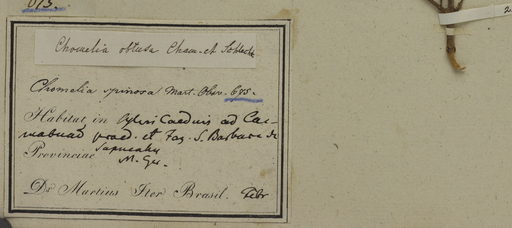 675.
Chomelia obtusa Cham. et Schlecht
Chomelia spinosa Mart. Obsv. 675.
Habitat in sylvis Caeduis ad Car-
et Faz. S. Barbara de
Provinciae Sapucahy
M. Ger.
Dr Martius Iter Brasil. Febr
2